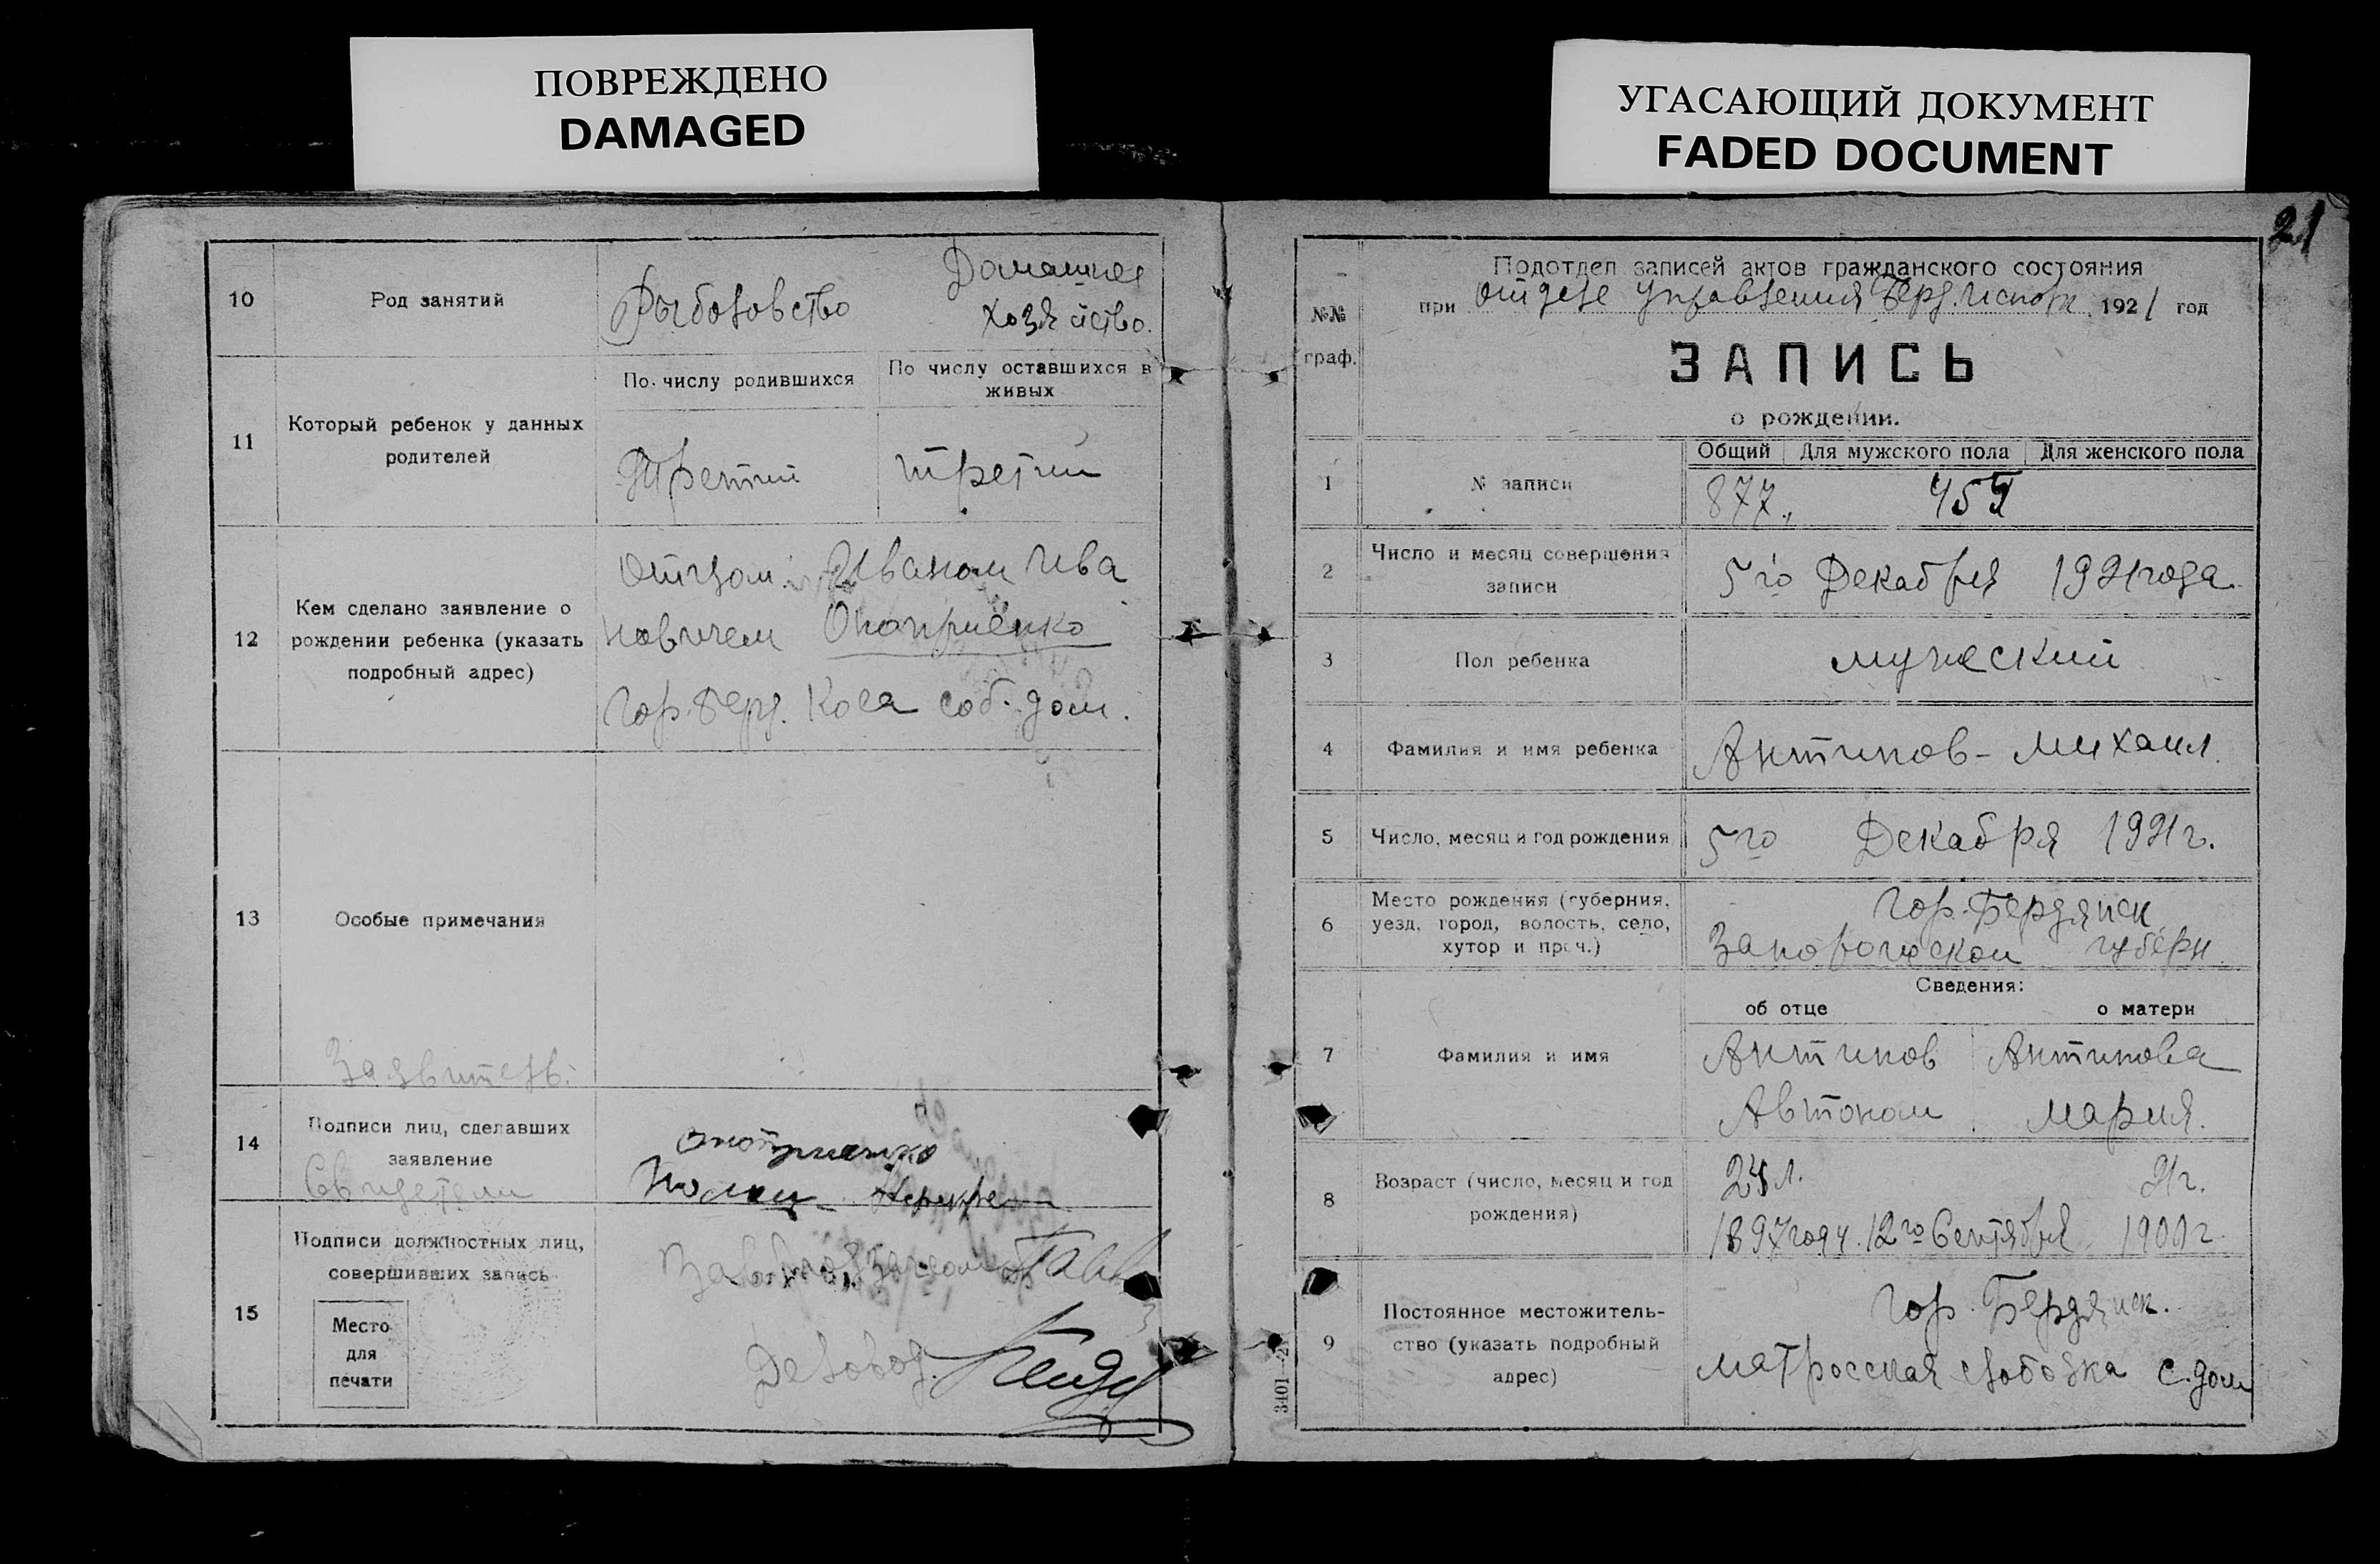 ПОВРЕЖДЕНО
DAMAGED
УГАСАЮЩИЙ ДОКУМЕНТ
FADED DOCUMENT
10
Род занятий
Рыболовство
Домашнее
хозяйство.
11
Который ребенок у данных
родителей
По числу родившихся
По числу оставшихся в
живых
Третий
третий
12
Кем сделано заявление о
рождении ребенка (указать
подробный адрес)
Отцом Иваном Ива
новичем Оноприенко
Гор. Берд. Коса соб. дом.
13
Особые примечания
Заявитель.
14
Подписи лиц, сделавших
заявление
Свидетели
Оноприенко
15
Подписи должностных лиц,
совершивших запись
Место
для
печати
Деловод.
21
№№
граф.
Подотдел записей актов гражданского состояния
при отделе управления Берд. Исполк 1921 год
ЗАПИСЬ
о рождении.
1
№ записи
Общий
Для мужского пола
Для женского пола
877.
2
Число и месяц совершения
записи
5го Декабря 1921 года
3
Пол ребенка
мужеский
4
Фамилия и имя ребенка
Антипов - Михаил.
5
Число, месяц и год рождения
5го Декабря 1921 г.
6
Место рождения (губерния,
уезд, город, волость, село,
хутор и проч.)
Гор. Бердянск
Запорожской губерн.
Сведения:
об отце
о матери
7
Фамилия и имя
Антипов
Антипова
Автоном
Мария.
8
Возраст (число, месяц и год
рождения)
24 л.
21 г.
1897 года 12го Сентября
1900 г.
9
Постоянное местожитель-
ство (указать подробный
адрес)
Гор. Бердянск.
Матросская слободка с. дом
3401